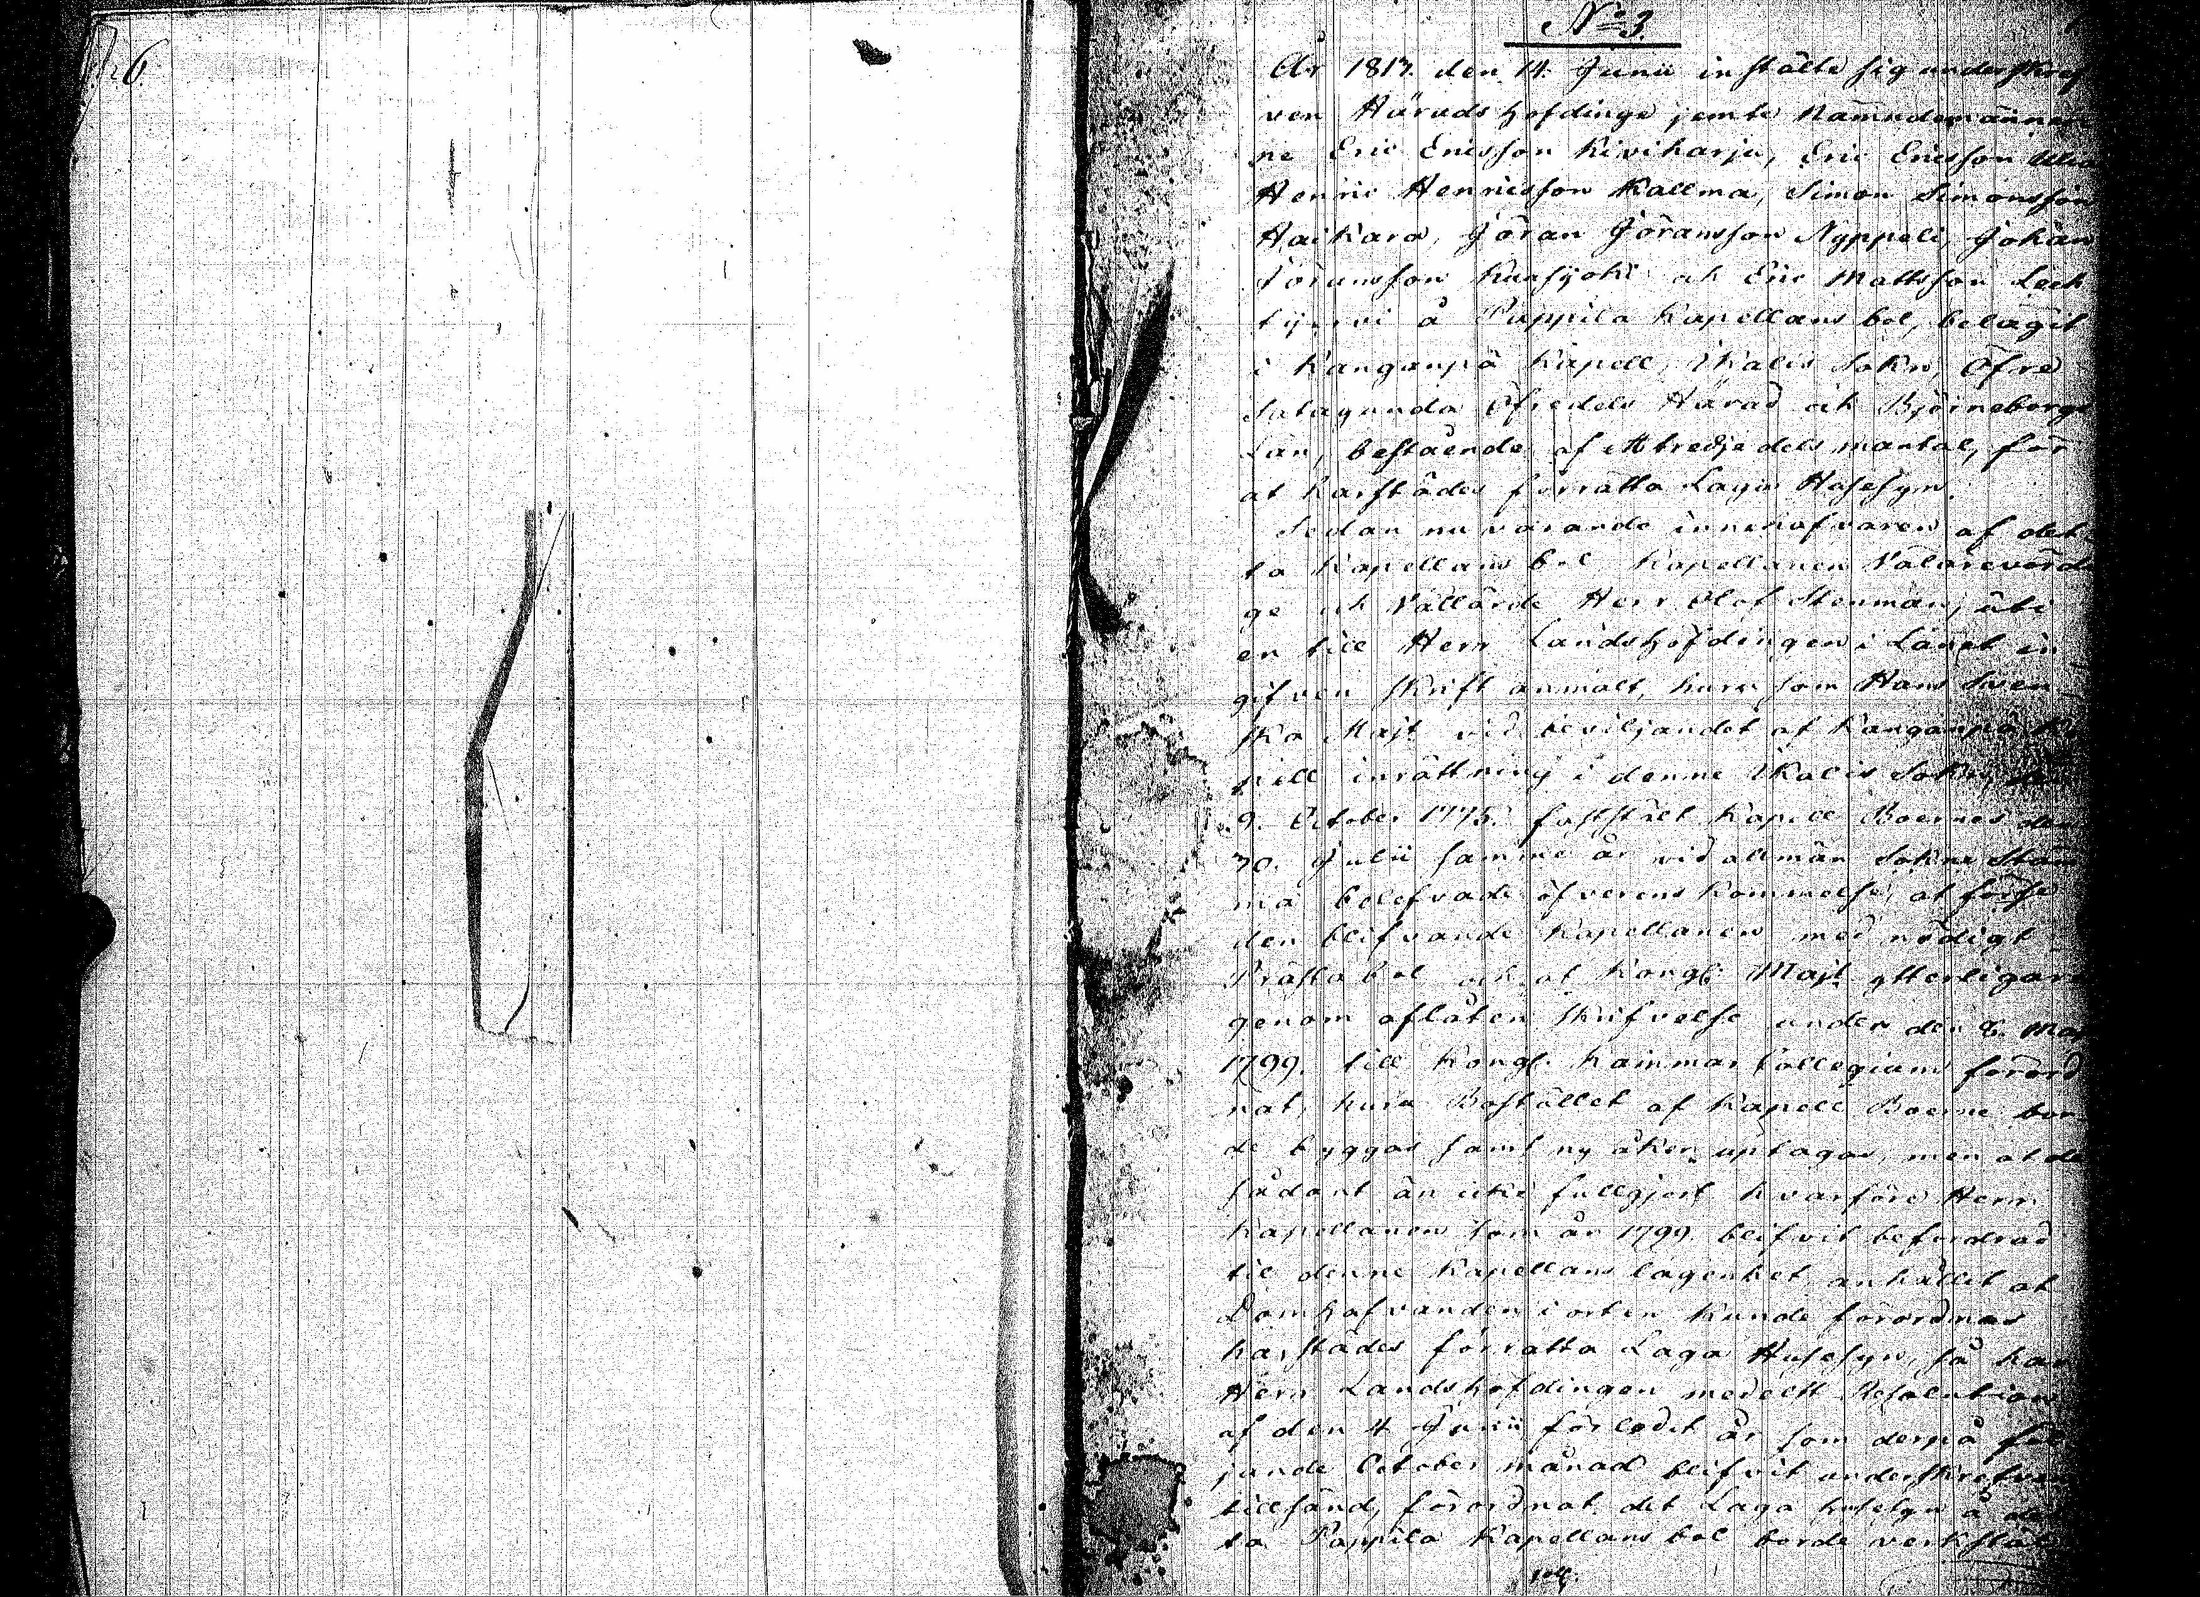 6
No 3.
År 1813. den 14. Junii instälte sig underskref
ven Häradshöfdinge jemte Nämndemänner
ne Eric Ericsson Kiviharju, Eric Ericsson
Henric Henricsson Kallma, Simon Simonsson
Haikara, Jöran Jöransson Nyppeli, Johan
Jöransson och Eric Mattsson Lech
tijervi å Pappila Kapellans bol, belägit
i Kanganpä Kapell, Ikalis Sokn, Öfre
Satagunda Öfredels Härad och Björneborgs
Län, bestående af ett tredje dels mantal, för
at härstädes förrätta Laga Husesyn.
Sedan nu varande innehafvaren af det
ta Kapellans bol, Kapellanen Välärevördi
ge och Vällärde Herr Olof Stenman, uti
en till Herr Landshöfdingen i Länet in
gifven skrift anmält, huru som Hans Sven
ska Majt vid beviljandet af Kanganpä Ka
pell inrättning i denne Ikalis Sokn, den
9. October 1775. fastställt Kapell Boernes den
30. Julii samme år vid allmän Sokne Stäm
ma belefvade öfverens kommelse, at förse
den blifvande Kapellanen med nödigt
Prästa bol, och at Kongl. Majt ytterligare
genom aflåten skrifvelse under den 8. Maj
1799. till Kongl. Kammar Collegium förord
nat, huru Bostället af Kapell Boerne bor
de byggas samt ny åker uptagas, men at de
sådant än icke fullgjort, hvarföre Herr
Kapellanen som år 1799. blifvit befordrad
til denne Kapellans lägenhet, anhållit at
Domhafvanden i orten kunde förordnas
härstädes förrätta Laga Husesyn, så har
Herr Landshöfdingen medelst Resolution
af den 4 Junii förledit år som derpå föl
jande October månad blifvit underskrefven
tillsänd, förordnat det Laga husesyn å det
ta Pappila Kapellans bol borde verkstäl